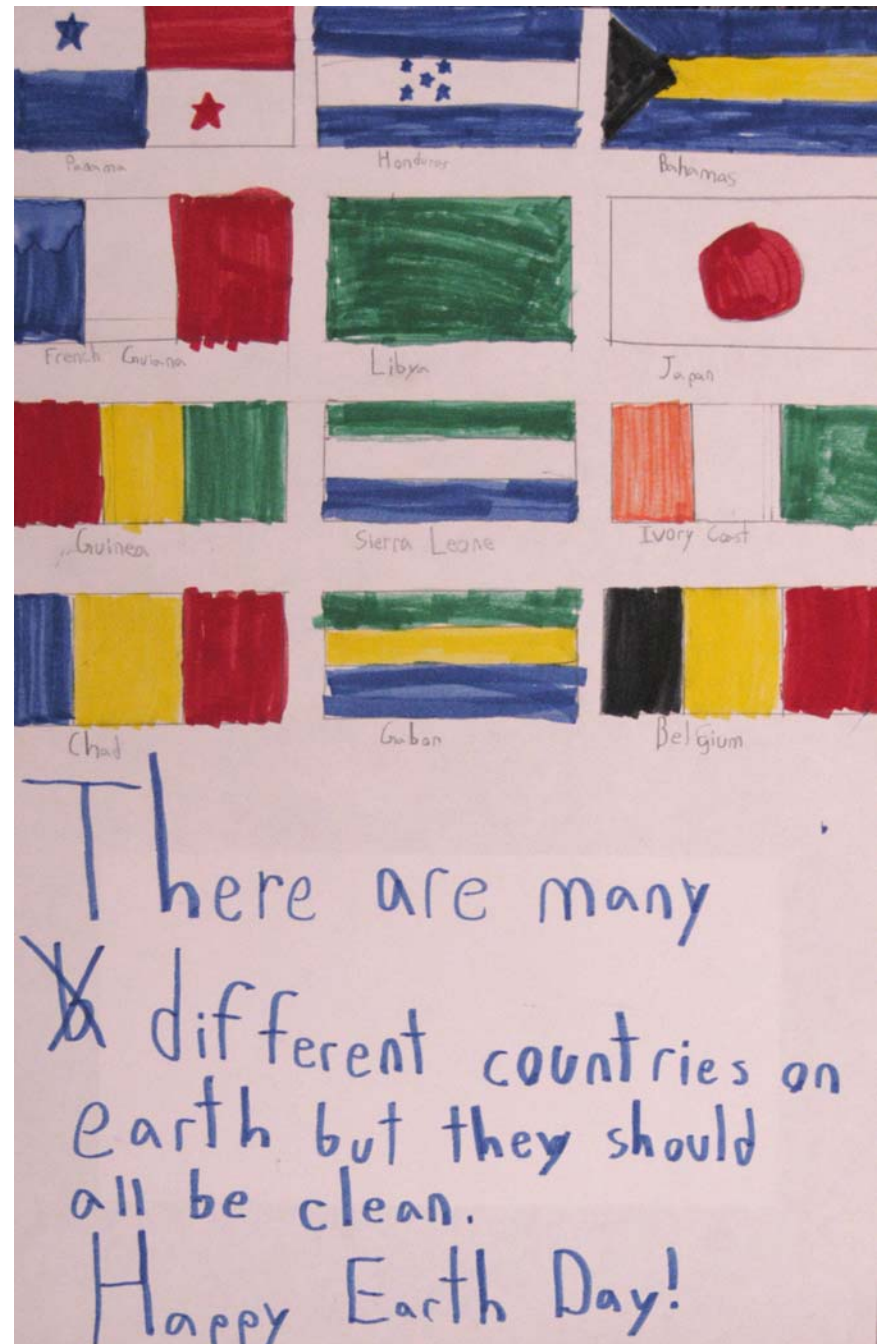 Panama Honduras Bahamas
French Guiana Libya Japan
Guinea Sierra Leone Ivory Coast
Chad Gabon Belgium
There are many
different countries on
earth but they should
all be clean.
Happy Earth Day!